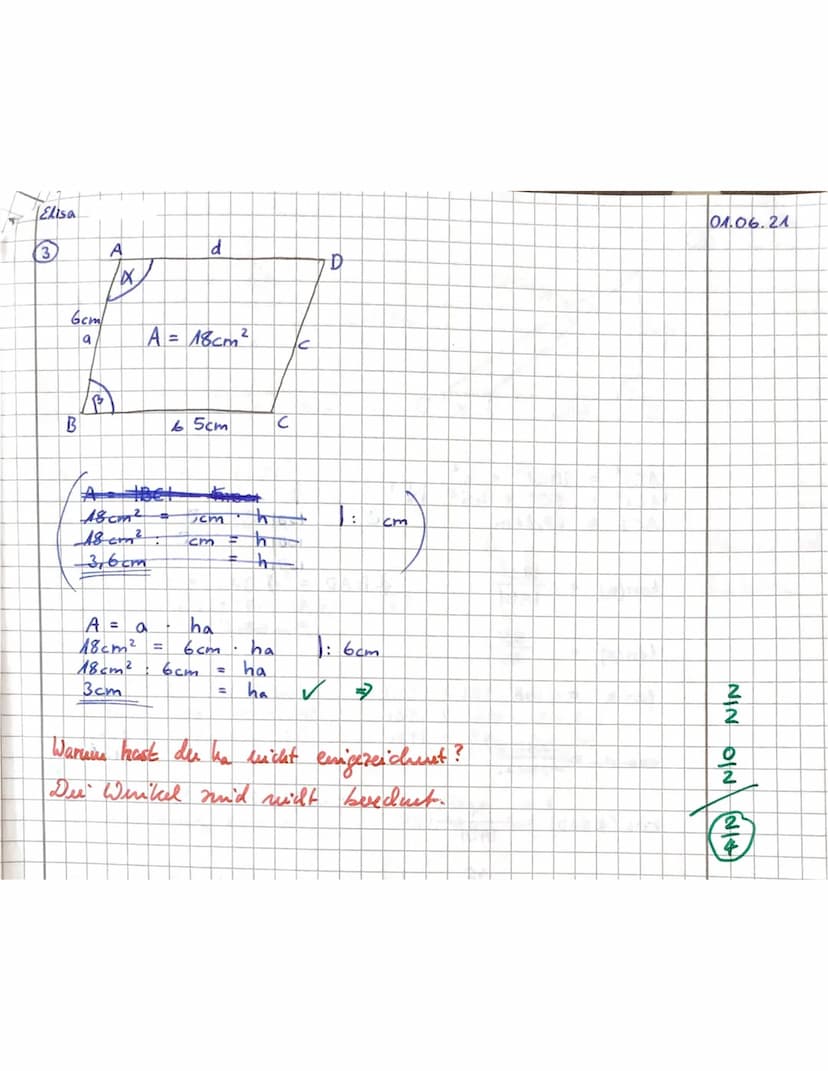 Elisa
01.06.21
3
A d D
α
6cm
a
A = 18cm²
c
β
B b 5cm C
A = |BC|
18cm² = cm · h |: cm
18cm² : cm = h
3,6cm = h
A = a · ha
18cm² = 6cm · ha |: 6cm
18cm² : 6cm = ha
3cm = ha ✓ ⇒
2/2
Warum hast du ha nicht eingezeichnet?
0/2
Die Winkel sind nicht berechnet.
2/4